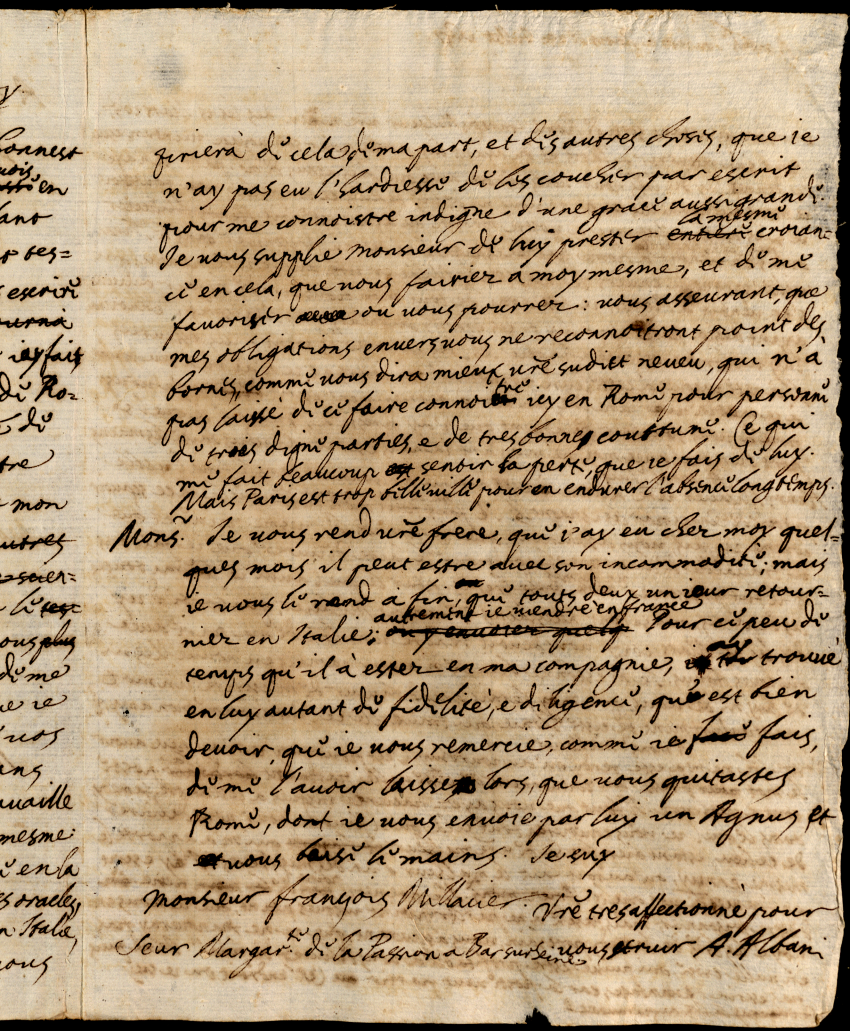 y
honnest
en
tant
tes=
escrire
ie y fais
de Ro=
de
tre
mon
autres
ous plus
de me
ue ie
vos
ans
availle
mesme
en la
s oracles,
n Italie,
vous
firiera de cela de ma part, et des autres choses, que ie
n'ay pas eu l'hardiesse de les coucher par escrit
pour me connoistre indigne d'une grace aussi grande.
la mesme
Je vous supplie Monsieur de luy prester entiere croian=
ce en cela, que vous fairiez a moy mesme, et de me
favoriser ou vous pourrez: vous asseurant, que
mes obligations envers vous ne reconnoitront point des
bornes, comme vous dira mieux vre sudict neveu, qui n'à
pas laissé de ce faire connoitre icy en Rome pour personne
de trois digne parties, e de tres bonnes couttume. Ce qui
me fait beaucoup sentir la perte, que ie fais de luy.
Mais Paris est trop belle ville pour en endurer l'absence longtemps.
Monsr. Je vous rend vre frere, que i'ay eu chez moy quel=
ques mois il peut estre avec son incommodité; mais
ie vous le rend à fin, que touts deux un iour retour=
autrement ie viendre en france
niez en Italie; ou y envoier quelq Pour ce peu de
temps qu'il à ester en ma compagnie, i ay trouvé
en luy autant de fidelité, e diligence, que est bien
devoir, que ie vous remercie, comme ie fais,
de me l'avoir laisse lors, que vous quitastes
Rome, dont ie vous envoie par luy un Agnus et
et vous baise le mains. Je suy
Monsieur françois Millavier. Vre tres affectionné pour
Seur Margarte. de la Passion a Bar sur seine vous servir A. Albani